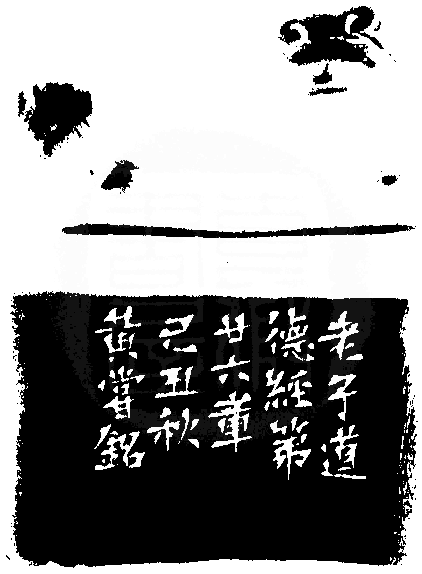 老子道
德經第
廿六章
己丑秋
黃嘗銘